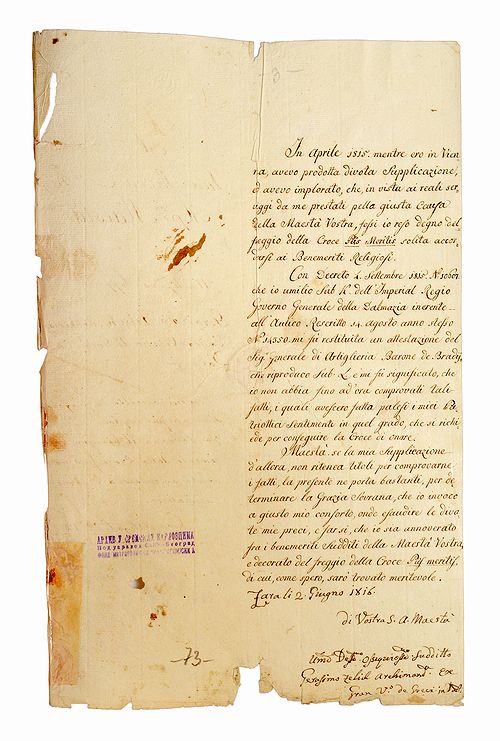 3-
In Aprile 1815. mentre ero in Vien
na, avevo prodotta divota Supplicazione,
ed avevo implorato, che, in vista ai reali ser,
vuggi da me prestati pella giusta Causa
della Maestà Vostra, fossi io reso degno del
freggio della Croce Piis Meritis solita accor,
darsi ai Benemeriti Religiosi.
Con Decreto 4. Settembre 1815. N.
che io umilio Sub K. dell'Imperial Regio
Governo Generale della Dalmazia inerente
all'Antico Rescritto 14. agosto anno stesso
N.º 14350. mi fù restituita un attestazione del
Sig.r Generale di Artiglieria Barone de Brady,
che riproduco Sub L. e mi fù significato, che
io non abbia fino ad ora comprovati tali
fatti, i quali avessero fatta palesi i miei Pa,
triottici sentimenti in quel grado, che si richi,
ede per conseguire la Croce di onore.
Maestà. se la mia Supplicazione
d'allora, non ritenea titoli per comprovarne
i fatti, la presente ne porta bastanti, per de
terminare la Grazia Sovrana, che io invoco
a giusto mio conforto, onde esaudire le divo,
te mie preci, e far sì, che io sia annoverato
fra i benemeriti Sudditi della Maestà Vostra,
e decorato del freggio della Croce Piis meritis,
di cui, come spero, sarò trovato meritevole.
Zara li 2. Giugno 1816.
di Vostra S. A. Maestà
Umo Suddito
Gerasimo Zelich Archimand.
Gran V.º de Greci in
АРХИВ У СРЕМСКИМ КАРЛОВЦИМА
Подуправом САНУ - Београд
-73-